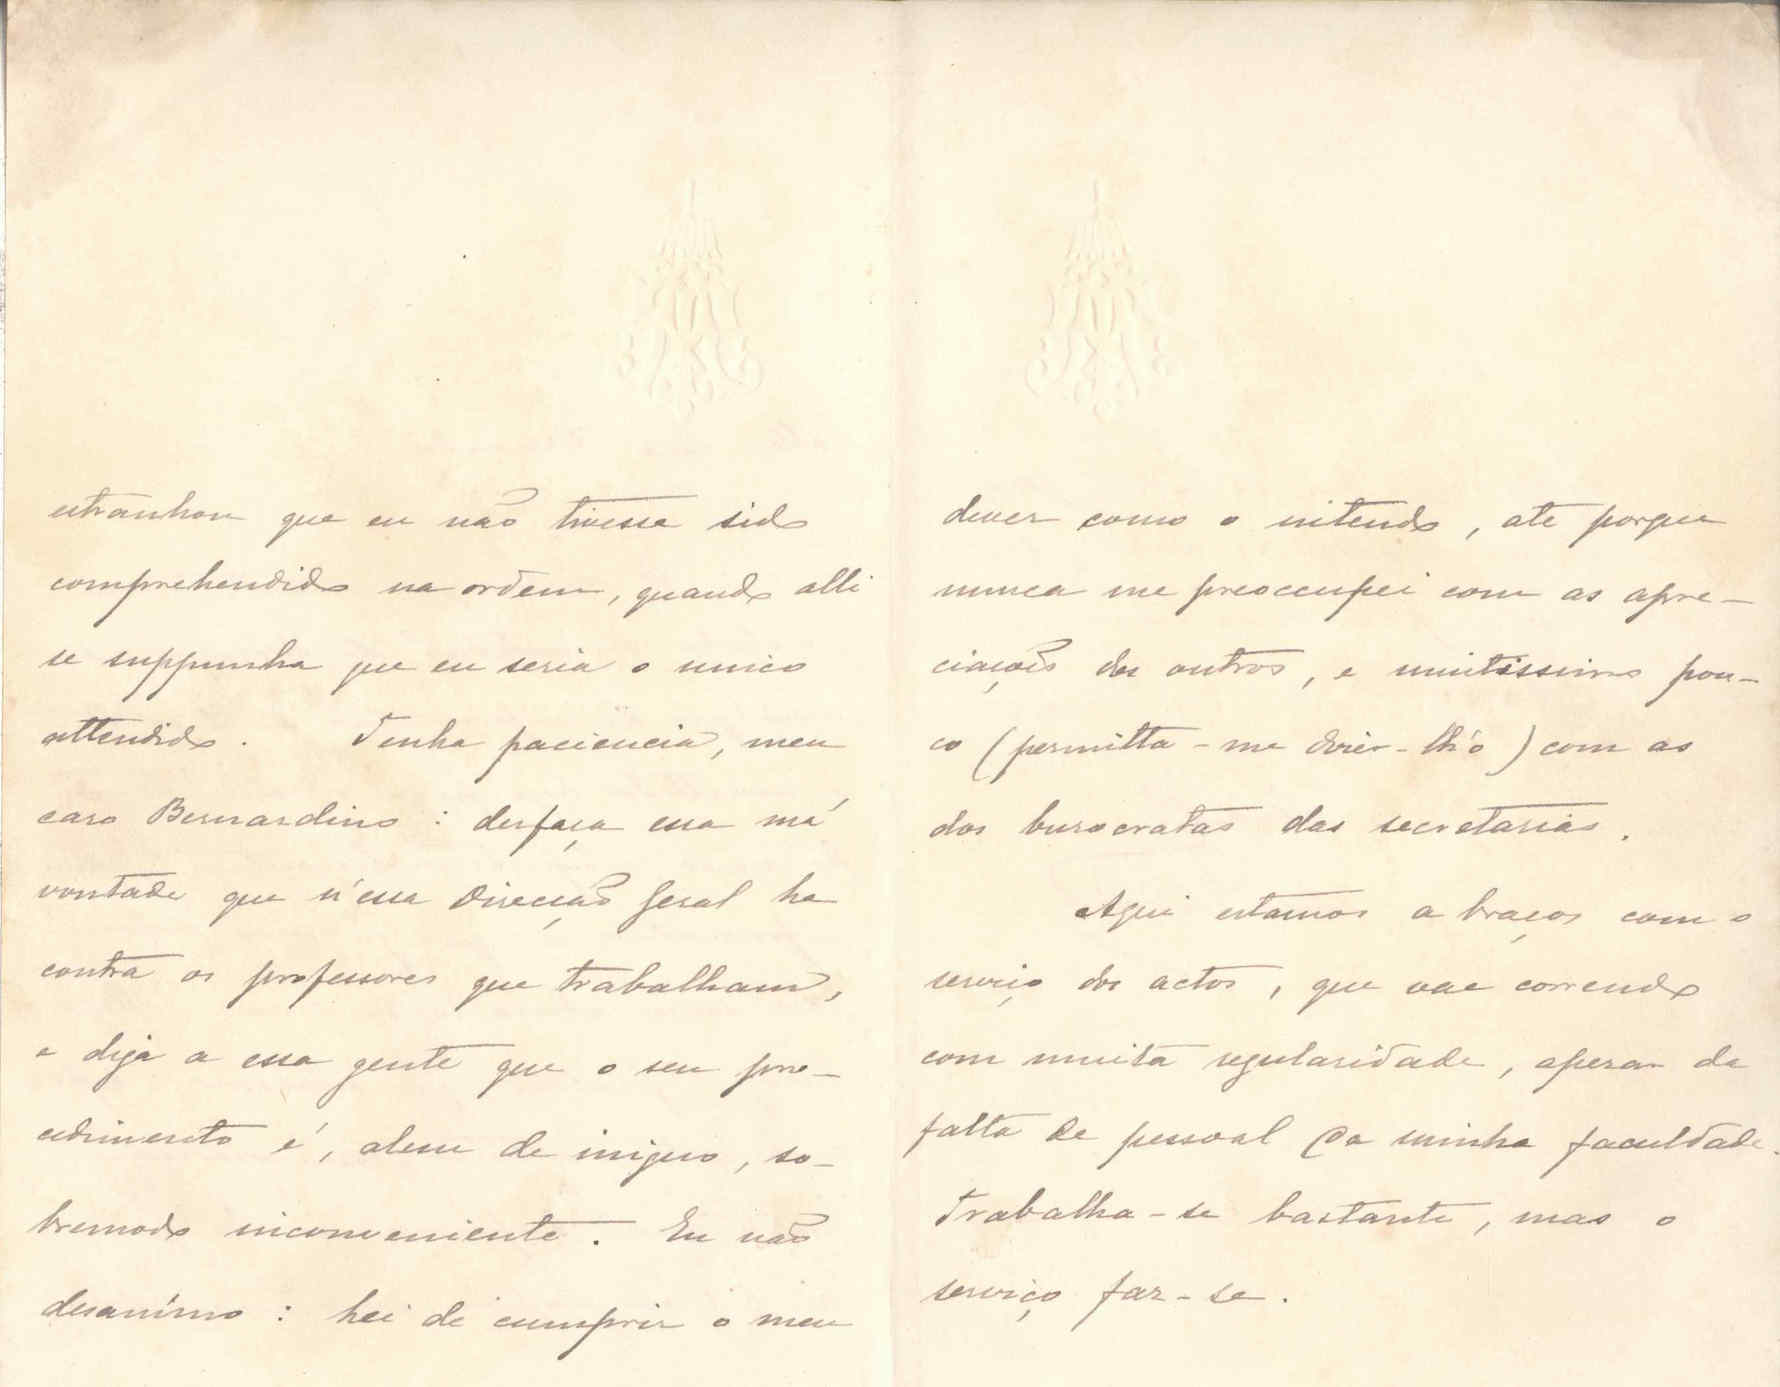 estranhou que eu não tivesse sido
comprehendido na ordem, quando alli
se suppunha que eu seria o unico
attendido. Tenha paciencia, meu
caro Bernardino: desfaça essa má
vontade que n'essa Direcção Geral ha
contra os professores que trabalham,
e diga a essa gente que o seu pro-
cedimento é, alem de iniquo, so-
bremodo inconveniente. Eu não
desanimo: hei de cumprir o meu
dever como o intendo, até porque
nunca me preoccupei com as apre-
ciações dos outros, e muitissimo pou-
co (permitta-me dizer-lh'o) com as
dos burocratas das secretarias.
Aqui estamos a braços com o
serviço dos actos, que vae correndo
com muita regularidade, apesar da
falta de pessoal da minha faculdade.
Trabalha-se bastante, mas o
serviço faz-se.